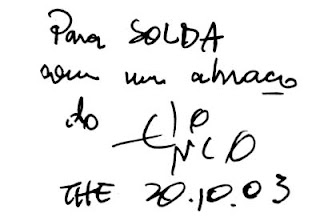 Para SOLDA
com um abraço
do
THE 20.10.03